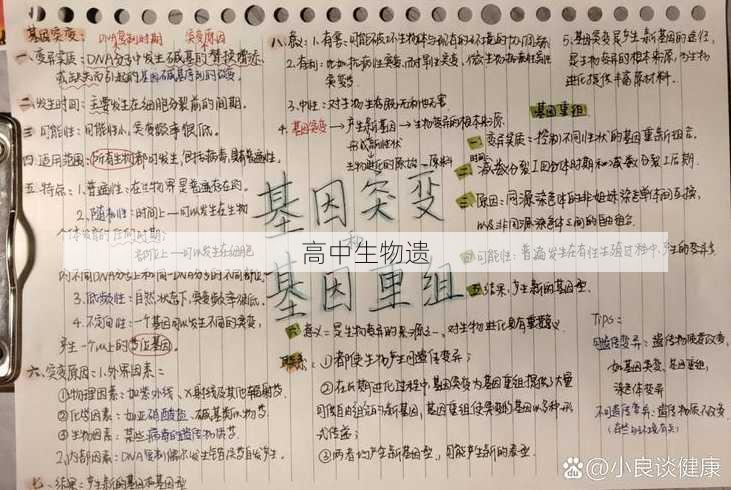 基因突变： DNA复制时期 突变原因
一、变异实质：DNA分子中发生碱基的替换、增添、
或缺失而引起的基因碱基序列的改变。
二、发生时间：主要发生在细胞分裂前的间期。
三、可能性：可能性小，突变频率很低。
四、适用范围：所有生物都可发生，包括病毒，具有普遍性。
五、特点：1.普遍性：在生物界是普遍存在的。
2.随机性：时间上—可以发生在生物
个体发育的任何时期；
部位上—可以发生在细胞
内不同DNA分子上和同一DNA分子的不同部位。
3.低频性：自然状态下，突变频率很低。
4.不定向性：一个基因可以发生不同的突变，
产生一个以上的等位基因。
六、突变原因：1.外界因素：
①物理因素：如紫外线、X射线及其他辐射等。
②化学因素：如亚硝酸盐、碱基类似物等。
③生物因素：某些病毒的遗传物质等。
2.内部因素：DNA复制偶尔发生错误等自发产生。
七、结果：产生新的基因和基因型
八、意义：1.有害：可能破坏生物体与现有的环境的协调关系
2.有利：
3.中性：对于生物有既无利也无害.
4.基因突变→产生新基因→生物变异的根本来源
形成新性状
生物进化的原始原料
5.基因突变是产生新基因的途径，
是生物变异的根本来源，为生物
进化提供丰富原材料.
基因突变
和
基因重组
高中生物遗
基因重组
一、变异实质：控制不同性状的基因重新组合.
二、时间：减数分裂I四分体时期和减数分裂I后期.
三、原因：同源染色体的非姐妹染色单体间互换，
以及非同源染色体之间的自由组合.
四、可能性：普遍发生在有性生殖过程中，产生的变异多
五、结果：产生新的基因型.
六、意义：是生物变异的来源之一，对生物进化具有重要意义
联系：①都使生物产生可遗传变异；
②在长期进化过程中，基因突变为基因重组提供了大量
可供自由组合的新基因，基因重组使突变的基因以多种形
式传递；
③两者均产生新基因型，可能产生新的表型.
Tips：
可遗传变异：遗传物质有改变，
如基因突变、基因重组，
染色体变异
不可遗传变异：遗传物质不改变.
(仅与环境有关)
小良谈健康